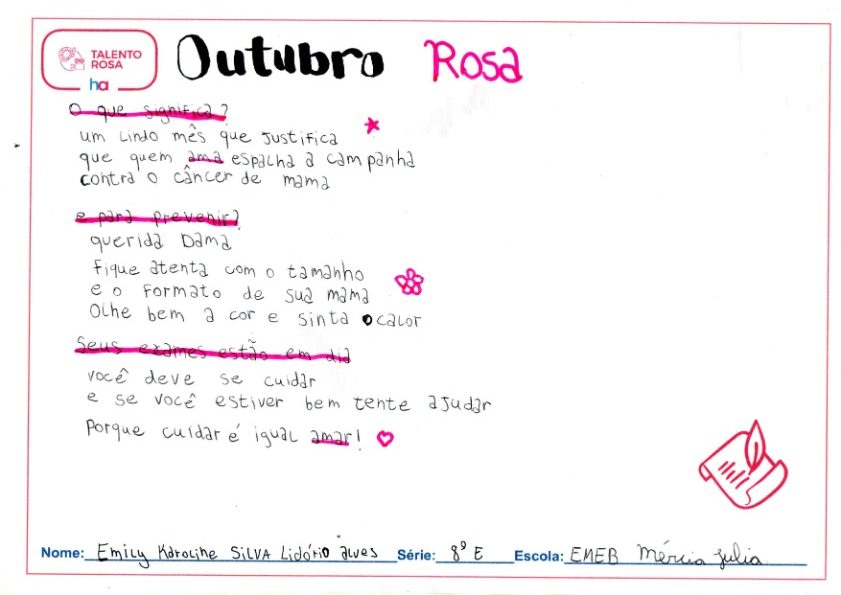 TALENTO
ROSA
ha
Outubro Rosa
O que significa?
um Lindo mês que Justifica
que quem ama espalha a campanha
contra o câncer de mama
e para prevenir?
querida Dama
Fique atenta com o tamanho
e o Formato de sua mama
Olhe bem a cor e sinta o calor
Seus exames estão em dia
você deve se cuidar
e se você estiver bem tente ajudar
Porque cuidar é igual amar!
Nome: Emily Karoline SILVA Lidório alves Série: 8º E Escola: EMEB Mércia Julia